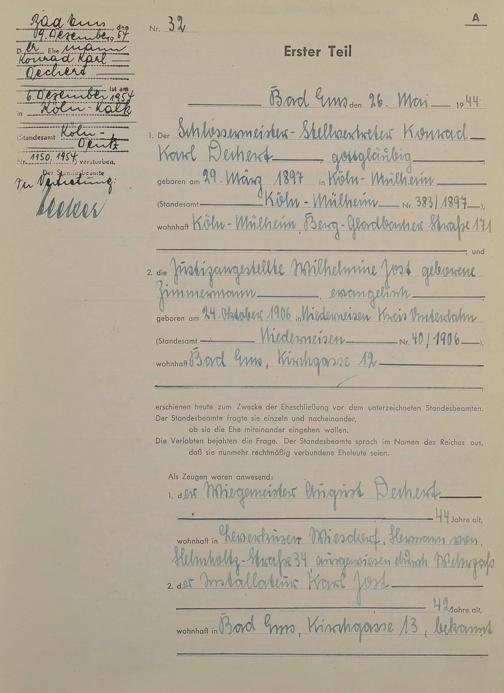 A
Nr. 32
Erster Teil
Bad Ems, den
09. Dezember 54
Der Ehemann
Konrad Karl
Dechert
ist am
6. Dezember 1954
in Köln-Kalk
(Standesamt Köln-
Deutz
Nr. 1150, 1954, verstorben.
Der Standesbeamte
In Vertretung:
Bad Ems den 26. Mai 1944
1. Der Schlossermeister-Stellvertreter Konrad
Karl Dechert, gottgläubig
geboren am 29. März 1897 in Köln-Mülheim
(Standesamt Köln-Mülheim Nr. 383/1897),
wohnhaft Köln-Mülheim, Berg-Gladbacher Straße 171
, und
2. die Justizangestellte Wilhelmine Jost geborene
Zimmermann, evangelisch
geboren am 24. Oktober 1906 in Niederneisen Kreis Unterlahn
(Standesamt Niederneisen Nr. 40/1906),
wohnhaft Bad Ems, Kirchgasse 12
erschienen heute zum Zwecke der Eheschließung vor dem unterzeichneten Standesbeamten.
Der Standesbeamte fragte sie einzeln und nacheinander,
ob sie die Ehe miteinander eingehen wollen.
Die Verlobten bejahten die Frage. Der Standesbeamte sprach im Namen des Reiches aus,
daß sie nunmehr rechtmäßig verbundene Eheleute seien.
Als Zeugen waren anwesend:
1. der Wiegemeister August Dechert
44 Jahre alt,
wohnhaft in Leverkusen Wiesdorf, Hermann von
Helmholtz-Straße 34 ausgewiesen durch Wehrpaß
2. der Installateur Karl Jost
42 Jahre alt,
wohnhaft in Bad Ems, Kirchgasse 13, bekannt